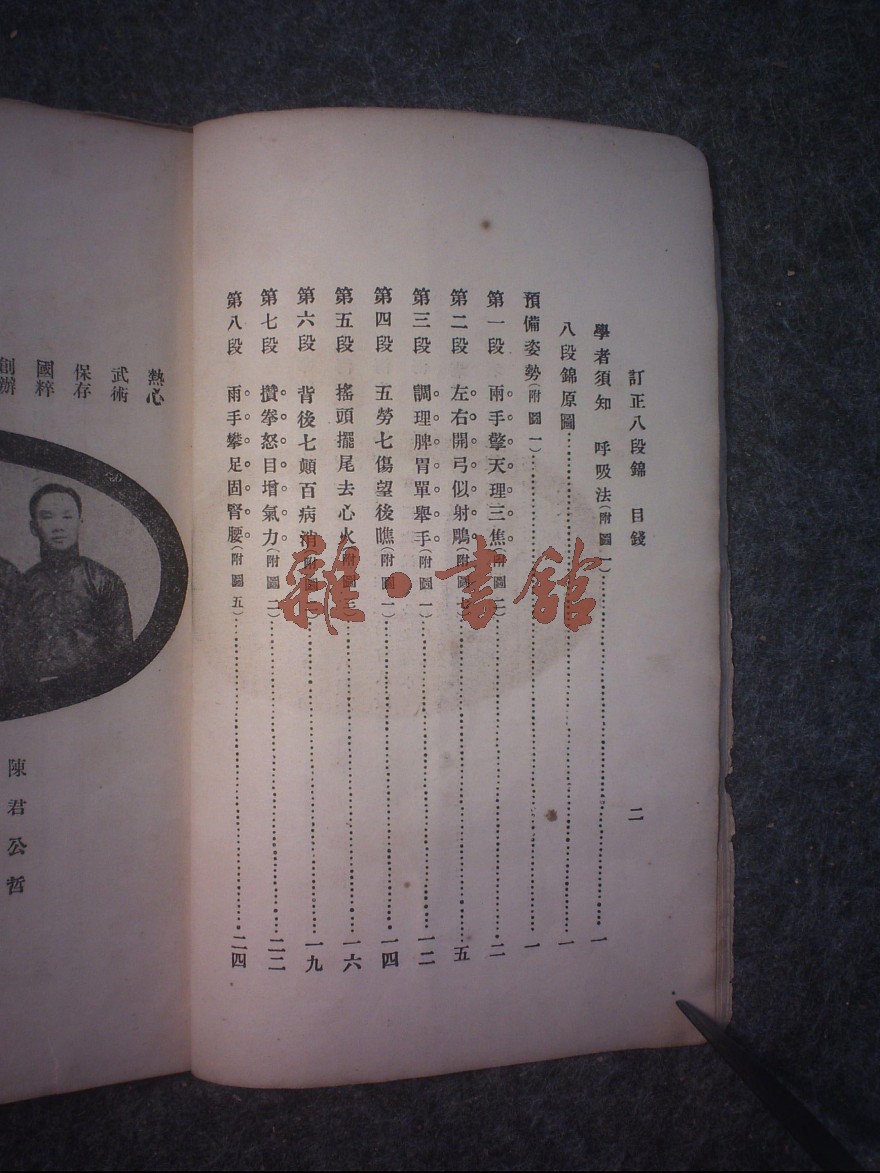 訂正八段錦 目錢 二
學者須知 呼吸法(附圖一)…………一
八段錦原圖…………一
預備姿勢(附圖一)…………一
第一段 兩手擎天理三焦(附圖二)…………二
第二段 左右開弓似射鵰(附圖七)…………五
第三段 調理脾胃單舉手(附圖一)…………一二
第四段 五勞七傷望後瞧(附圖一)…………一四
第五段 搖頭擺尾去心火(附圖…………一六
第六段 背後七顛百病消(附圖…………一九
第七段 攢拳怒目增氣力(附圖二)…………二二
第八段 兩手攀足固腎腰(附圖五)…………二四
雜·書館
熱心
武術
保存
國粹
創辦
陳君公哲